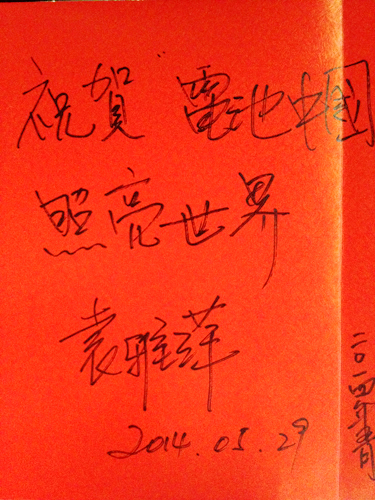 祝賀 電池中国
照亮世界
袁雅萍
2014.05.29
二〇一四年